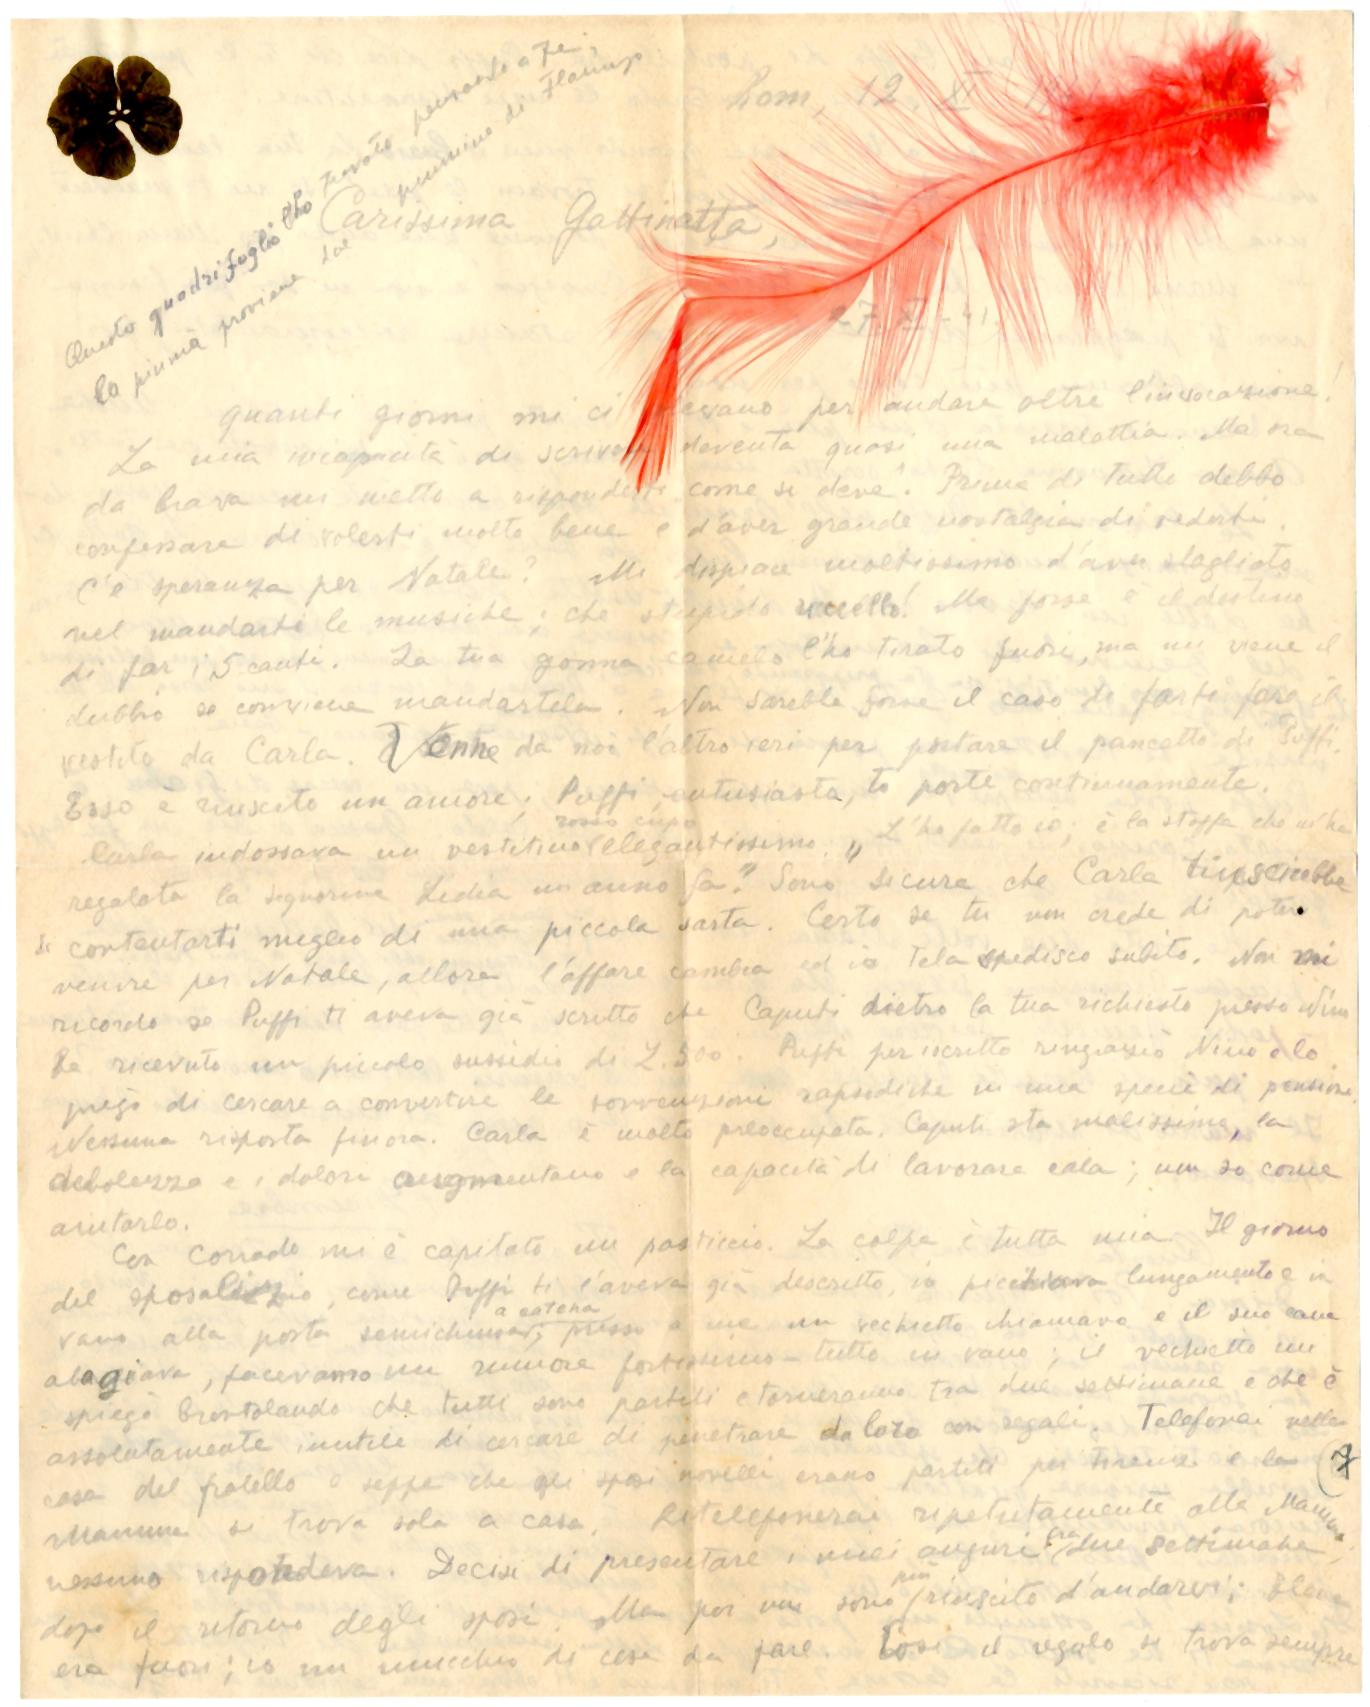 Questo quadrifoglio l'ho trovato pensando a Te,
la piuma proviene dal piumino di Flamingo
Rom, 12. XI
Carissima Gattinetta,
27. X - 41.
quanti giorni mi ci per andare oltre l'invocazione!
La mia incapacità di scrivere deventa quasi una malattia. Ma ora
da brava mi metto a risponderti come si deve! Prima di tutto debbo
confessare di volerti molto bene e d'aver grande nostalgia di vederti.
C'è speranza per Natale? Mi dispiace moltissimo d'aver sbagliato
nel mandarti le musiche; che stupido uccello! Ma forse è il destino
di far i 5 canti. La tua gonna camelo l'ho tirato fuori, ma mi viene il
dubbio se conviene mandartela. Non sarebbe forse il caso di farti fare il
vestito da Carla. Venne da noi l'altro ieri per portare il pancetto di Puffi.
Esso è riuscito un amore; Puffi, entusiasta, lo porte continuamente.
Carla indossava un vestitino rosso cupo elegantissimo. „L'ho fatto io; è la stoffa che mi ha
regalata la signorina Lidia un anno fa." Sono sicura che Carla riuscirebbe
contentarti meglio di una piccola sarta. Certo se tu non crede di poter
venire per Natale, allora l'affare cambia ed io te la spedisco subito. Non mi
ricordo se Puffi ti aveva già scritto che Caputi dietro la tua richiesta presso Nino
ha ricevuto un piccolo sussidio di L. 500. Puffi per iscritto ringraziò Nino e lo
pregò di cercare a convertire le sovvenzioni rapsodiche in una specie di pensione.
Nessuna risposta finora. Carla è molto preoccupata. Caputi sta malissimo, la
debolezza e i dolori augmentano e la capacità di lavorare cala; non so come
aiutarlo.
Con Corrado mi è capitato un pasticcio. La colpa è tutta mia. Il giorno
del sposalizio, come Puffi ti l'aveva già descritto, io picchiava lungamente e in
vano alla porta semichiusa a catena; presso a me un vechietto chiamava e il suo cane
abagiava, facevamo un rumore fortissimo - tutto in vano; il vechietto mi
spiegò brontolando che tutti sono partiti e torneranno tra due settimane e che è
assolutamente inutile di cercare di penetrare da loro con regali. Telefonai nella
casa del fratello e seppe che gli sposi novelli erano partiti per Firenze e la
Mamma si trova sola a casa. Ritelefonerai ripetutamente alla Mamma,
nessuno rispondeva. Decisi di presentare i miei auguri fra due settimane,
dopo il ritorno degli sposi. Ma poi non sono più riuscito d'andarvi;
era fuori; io un mucchio di cose da fare. Così il regalo si trova sempre
7